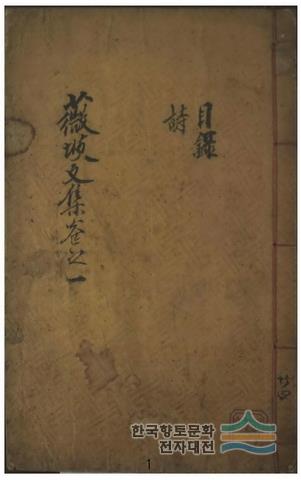 目錄
詩
薇坡文集卷之一
共四
한국향토문화
전자대전
1